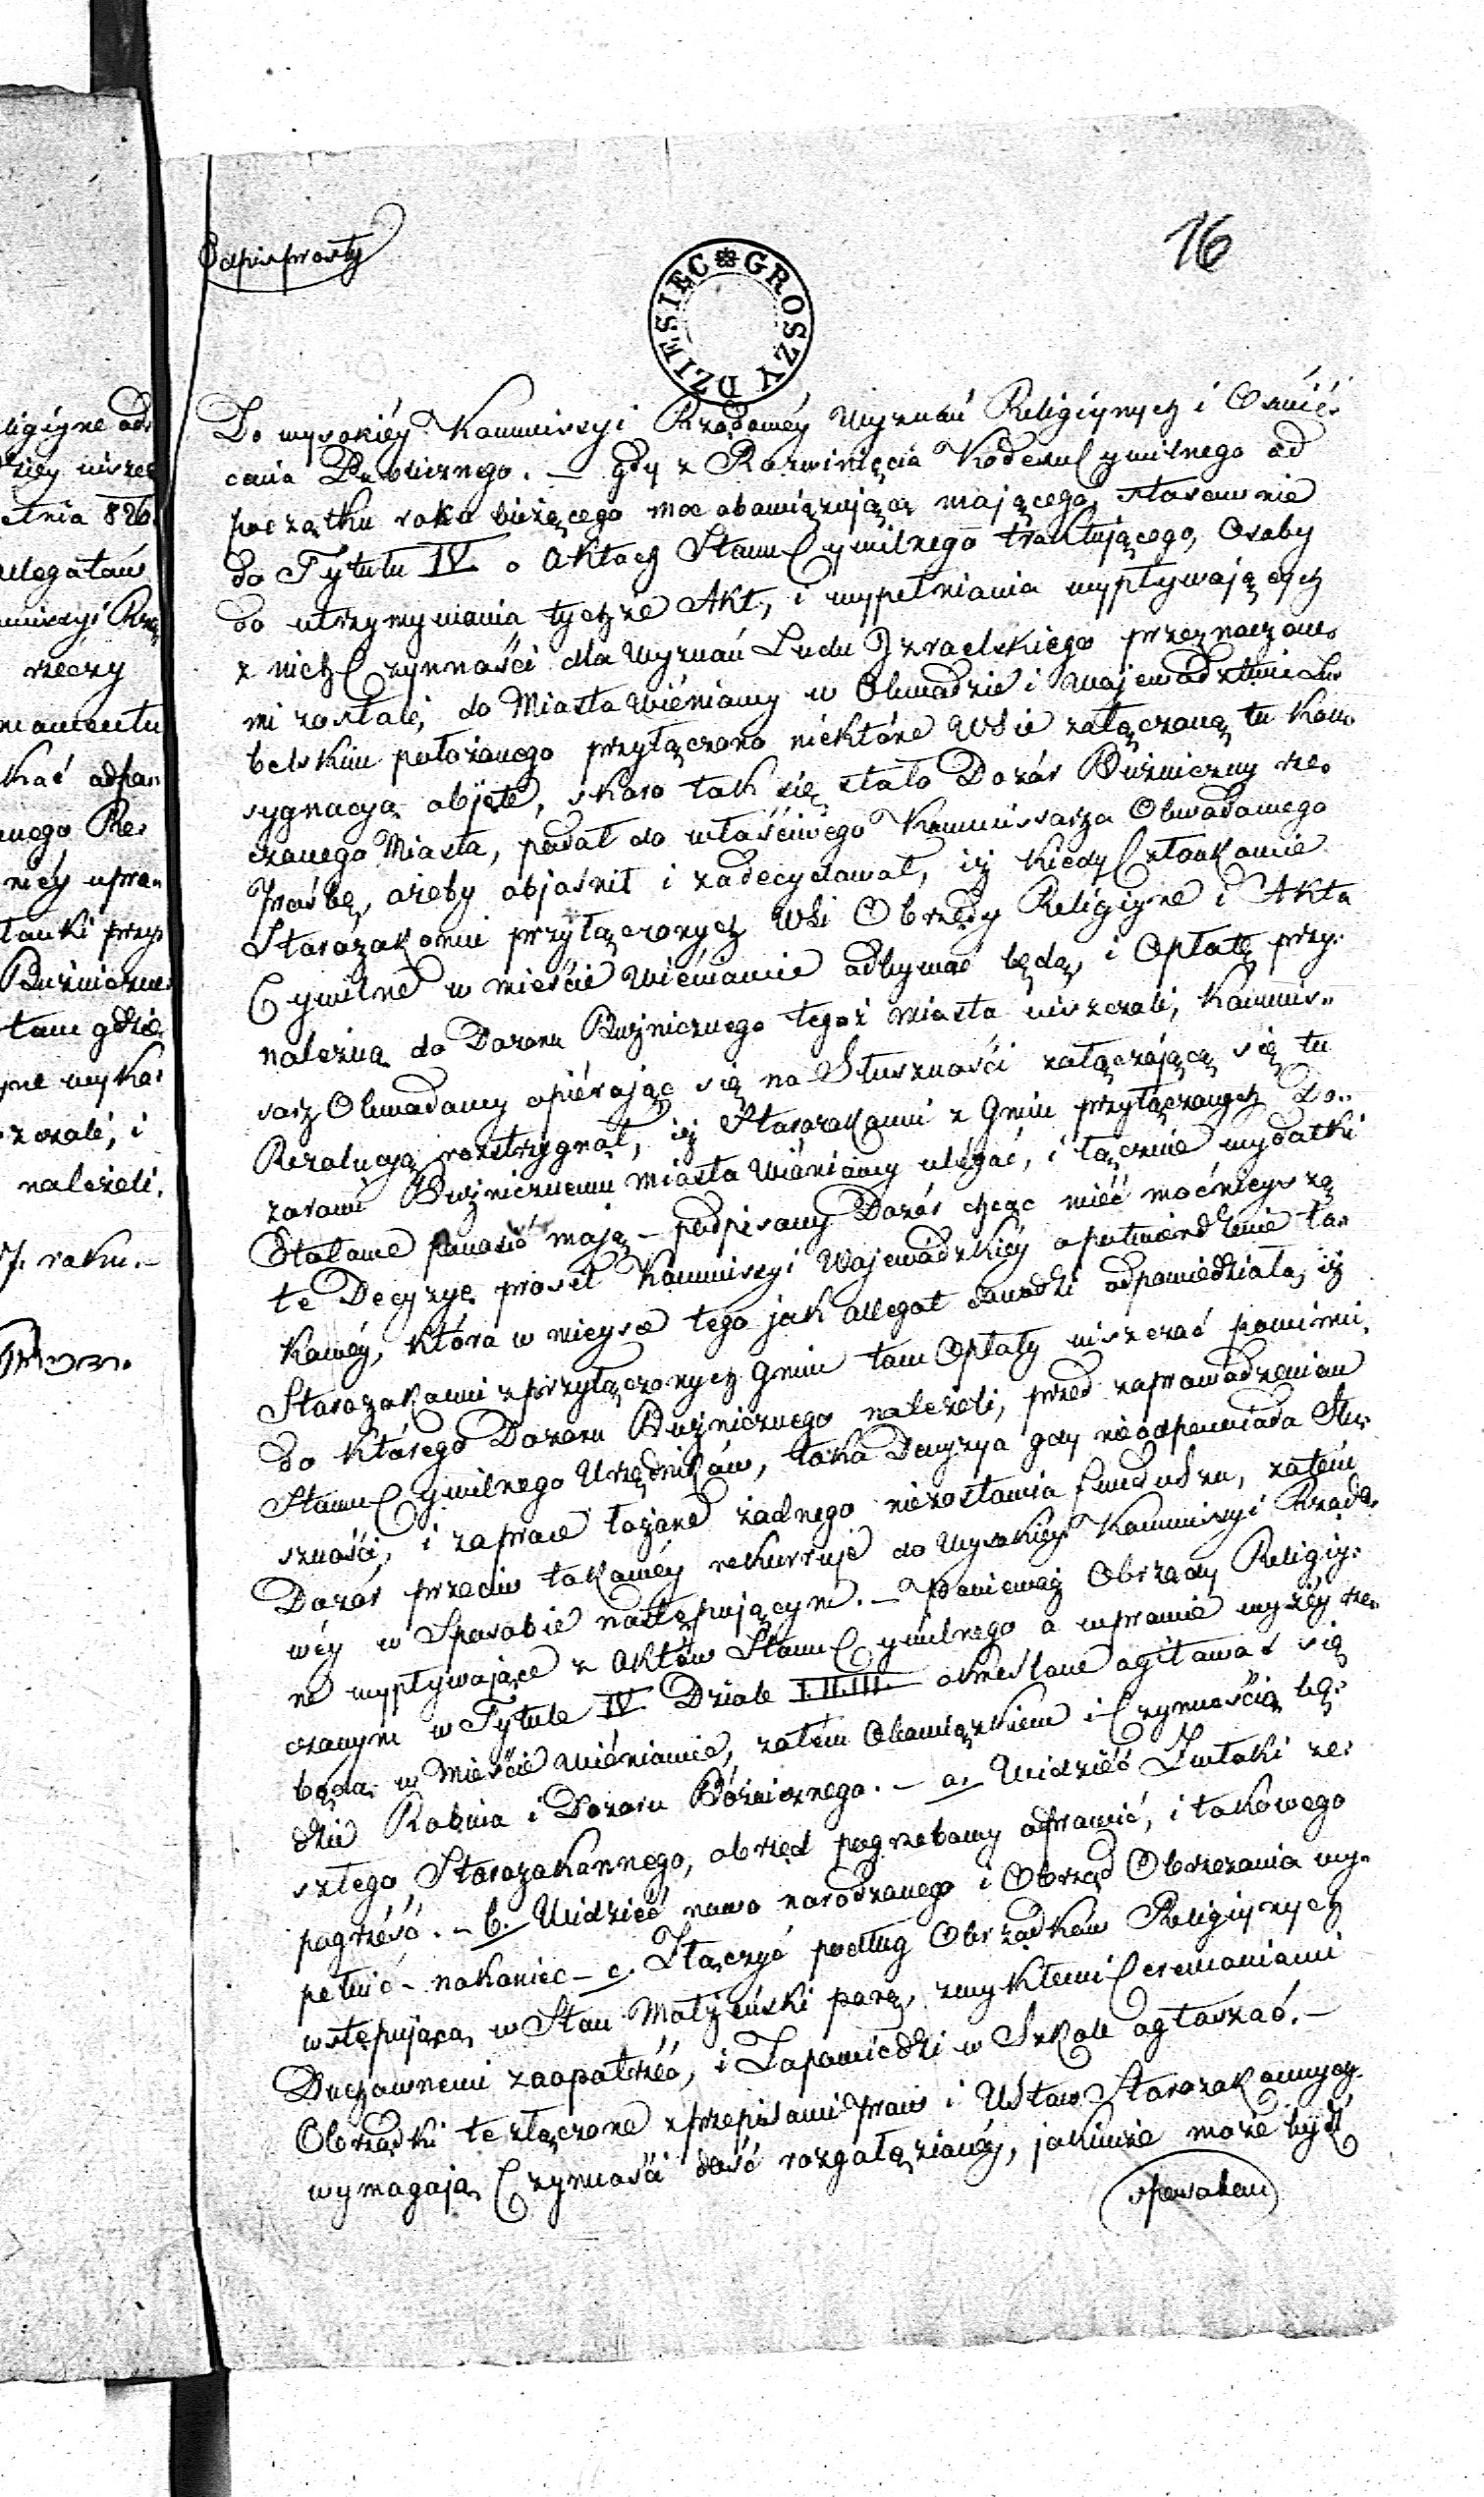 Odpis prosty
16
DZIESIĘC GROSZY
Do wysokiéy Kommissyi Rządowéy Wyznań Religiynych i Oświé-
cenia Publicznego. — gdy z Rozwinięcia Kodexu Cywilnego od
początku roku bieżącego moc obowiązującą maiącego, stosownie
do Tytułu IV. o Aktach Stanu Cywilnego traktującego, Osoby
do utrzymywania tychże Akt, i wypełniania wypływających
z nich Czynności dla Wyznań Ludu Izraelskiego przeznaczone-
mi zostałi, do Miasta Wiéniawy w Obwodzie i Województwie Lu-
belskim położonego przyłączono niektóre Wsie załączoną tu Kon-
sygnacyą objęte, skoro tak się stało Dozór Bużniczny rze-
czonego Miasta, podał do właściwego Kommissarza Obwodowego
Prośbę, ażeby objaśnił i zadecydował, iż kiedy Członkowie
Starozakonni przyłączonych Wsi Obrzędy Religiyne i Akta
Cywilne w mieście Wiéniawie odbywać będą, i Opłatę przy-
należną do Dozoru Bużnicznego tegoż miasta uiszczali, Kommis-
sarz Obwodowy opiérając się na Słuszności załączającą się tu
Rezolucyą rozstrzygnął, iż Starozakonni z Gmin przyłączonych Do-
zorowi Bużnicznemu miasta Wiéniawy ulégać, i łącznie wydatki
Etatowe ponosić mają — podpisany Dozór chcąc mieć mocnieyszą
te Decyzyę prosił Kommissyi Wojewódzkiéy o potwierdzenie ta-
kowéy, która w mieysce tego jak allegat dowodzi odpowiedziała, iż
Starozakonni z przyłączonych Gmin tam Opłaty uiszczać powinni,
do którego Dozoru Bużnicznego należeli, przed zaprowadzeniem
Stanu Cywilnego Urzędników, taka Decyzya gdy nieodpowiada Słu-
szności, i zaprace łożone żadnego niezostawia funduszu, zatém
Dozór przeciw takowéy rekurruje do Wysokiéy Kommissyi Rządo-
wéy w Sposobie następującym. — Ponieważ Obrządy Religiy-
ne wypływające z Aktów Stanu Cywilnego a w prawie wyżéy rze-
czonym w Tytule IV. Dziale I. II. III. określone agitować się
będą w Mieście Wiéniawie, zatém Obowiązkiem i Czynnością bę-
dzie Rabina i Dozoru Bóżnicznego. — a. Widzieć Zwłoki ze-
szłego Starozakonnego, obrzęd pogrzebowy odprawić, i takowego
pogrześć. — b. Widzieć nowo narodzonego i Obrząd Obrzezania wy-
pełnić — nakoniec — c. Złączyć podług Obrządków Religiynych
wstępującą w Stan Małżeński parę, zwykłemi Ceremoniami
Duchownemi zaopatrzéć, i Zapowiedzi w Szkole ogłaszać. —
Obrządki te złączone z przepisami praw i Ustaw Starozakonnych
wymagają Czynności dość rozgałęzionéy, jakimże może bydź
sposobem
ligiyne od-
uiszcz
etnia 826.
allegatów
mmissyi Rzą
rzeczy
momentu
kać odpo-
nego Re-
niéy upra-
przy-
Bużniczne-
tam gdzie
zczali, i
należeli.
7. roku. —